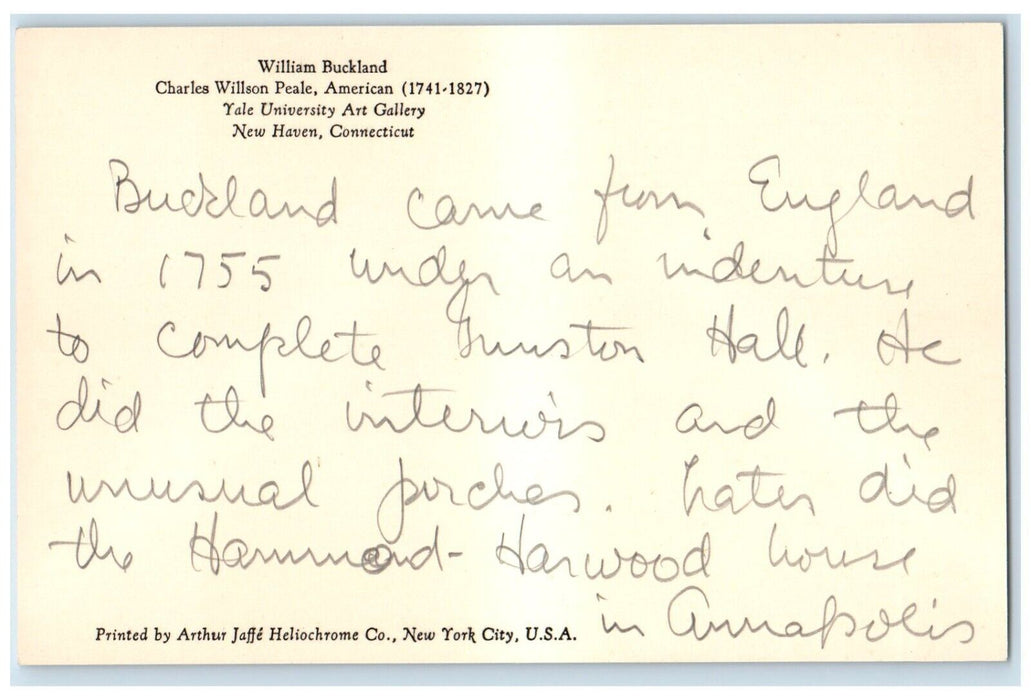 William Buckland
Charles Willson Peale, American (1741-1827)
Yale University Art Gallery
New Haven, Connecticut
Buckland came from England
in 1755 under an indenture
to complete Gunston Hall. He
did the interiors and the
unusual porches. Later did
the Hammond-Harwood house
in Annapolis
Printed by Arthur Jaffé Heliochrome Co., New York City, U.S.A.